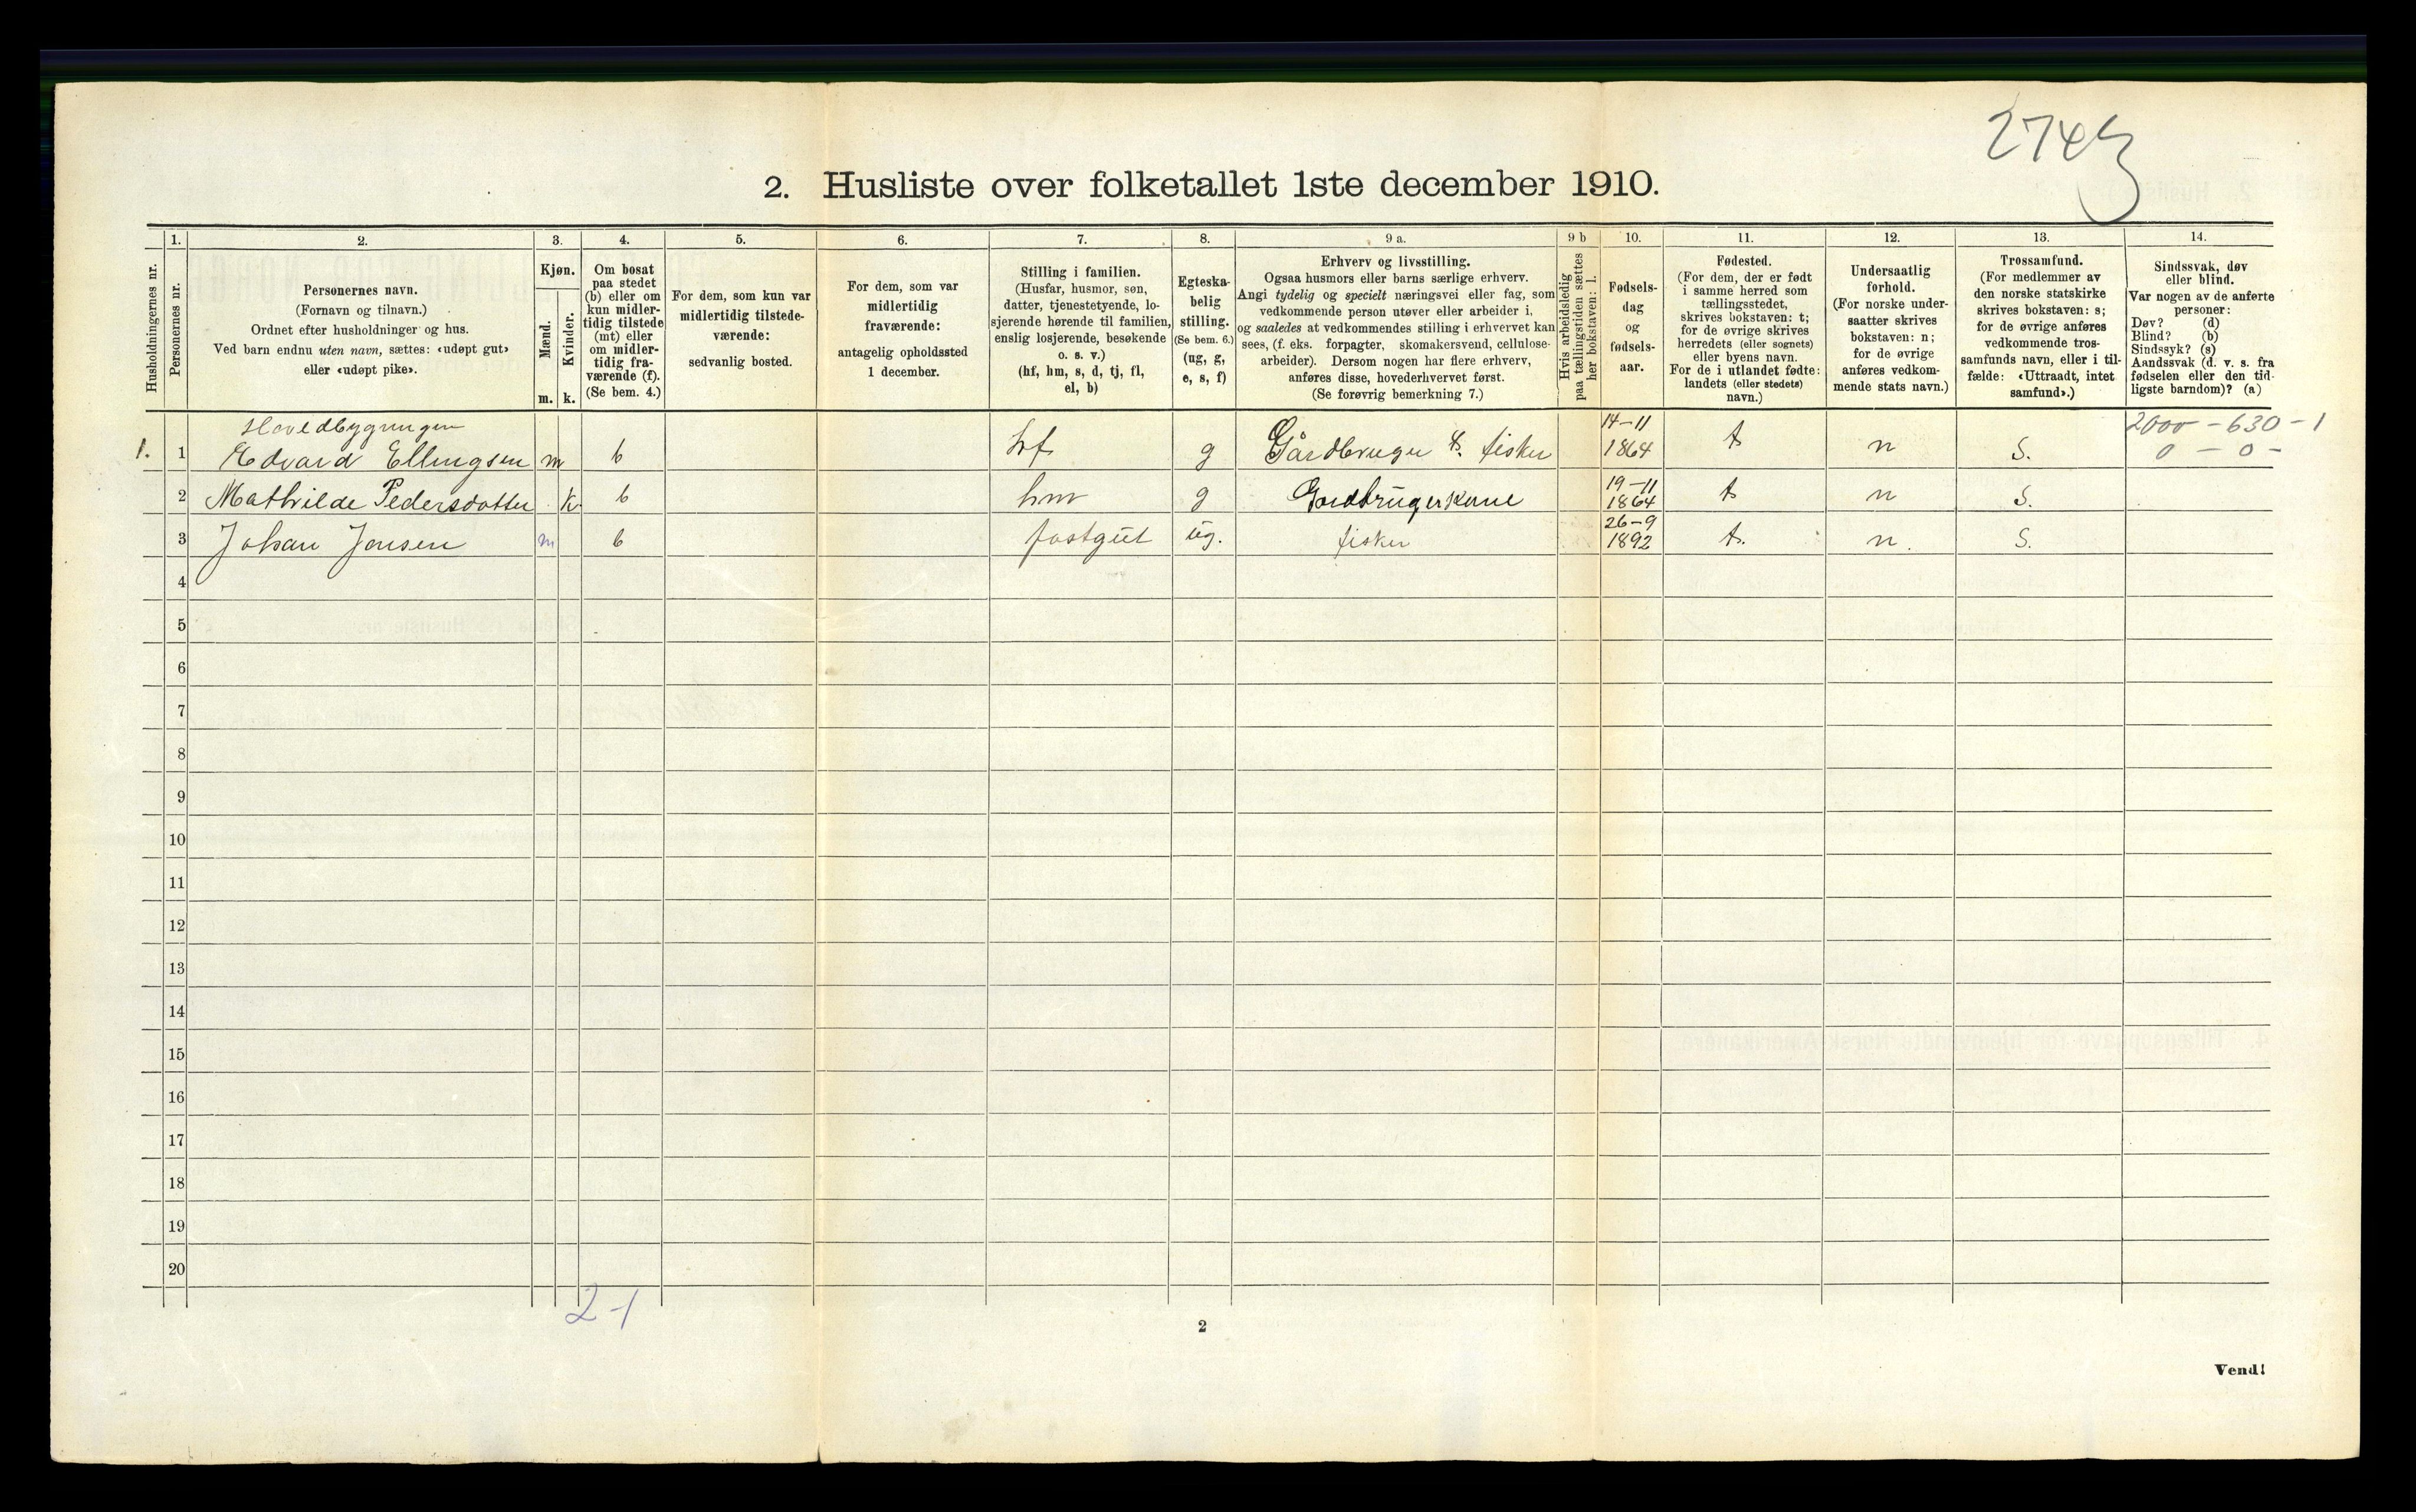 2745
2. Husliste over folketallet 1ste december 1910.
Husholdningernes nr.
1.
Personernes nr.
2.
Personernes navn.
(Fornavn og tilnavn.)
Ordnet efter husholdninger og hus.
Ved barn endnu uten navn, sættes: «udøpt gut»
eller «udøpt pike».
3.
Kjøn.
Mænd.
Kvinder.
m. k.
4.
Om bosat
paa stedet
(b) eller om
kun midler-
tidig tilstede
(mt) eller
om midler-
tidig fra-
værende (f).
(Se bem. 4.)
5.
For dem, som kun var
midlertidig tilstede-
værende:
sedvanlig bosted.
6.
For dem, som var
midlertidig
fraværende:
antagelig opholdssted
1 december.
7.
Stilling i familien.
(Husfar, husmor, søn,
datter, tjenestetyende, lo-
sjerende hørende til familien,
enslig losjerende, besøkende
o. s. v.)
(hf, hm, s, d, tj, fl,
el, b)
8.
Egteska-
belig
stilling.
(Se bem. 6.)
(ug, g,
e, s, f)
9 a.
Erhverv og livsstilling.
Ogsaa husmors eller barns særlige erhverv.
Angi tydelig og specielt næringsvei eller fag, som
vedkommende person utøver eller arbeider i,
og saaledes at vedkommendes stilling i erhvervet kan
sees, (f. eks. forpagter, skomakersvend, cellulose-
arbeider). Dersom nogen har flere erhverv,
anføres disse, hovederhvervet først.
(Se forøvrig bemerkning 7.)
9 b
Hvis arbeidsledig
paa tællingstiden sættes
her bokstaven: l.
10.
Fødsels-
dag
og
fødsels-
aar.
11.
Fødested.
(For dem, der er født
i samme herred som
tællingsstedet,
skrives bokstaven: t;
for de øvrige skrives
herredets (eller sognets)
eller byens navn.
For de i utlandet fødte:
landets (eller stedets)
navn.)
12.
Undersaatlig
forhold.
(For norske under-
saatter skrives
bokstaven: n;
for de øvrige
anføres vedkom-
mende stats navn.)
13.
Trossamfund.
(For medlemmer av
den norske statskirke
skrives bokstaven: s;
for de øvrige anføres
vedkommende tros-
samfunds navn, eller i til-
fælde: «Uttraadt, intet
samfund».)
14.
Sindssvak, døv
eller blind.
Var nogen av de anførte
personer:
Døv? (d)
Blind? (b)
Sindssyk? (s)
Aandssvak (d. v. s. fra
fødselen eller den tid-
ligste barndom)? (a)
Hovedbygningen 14-11 2000 - 630 - 1
1. 1 Edvard Ellingsen m b hf g Gårdbruger & fisker 1864 t n S. 0 - 0 -
19-11
2 Mathilde Pedersdatter k b hm g Gardbrugerkone 1864 t n S.
26-9
3 Johan Jensen m b fostgut ug. fisker 1892 t. n. S.
4
5
6
7
8
9
10
11
12
13
14
15
16
17
18
19
20
2-1
2
Vend!